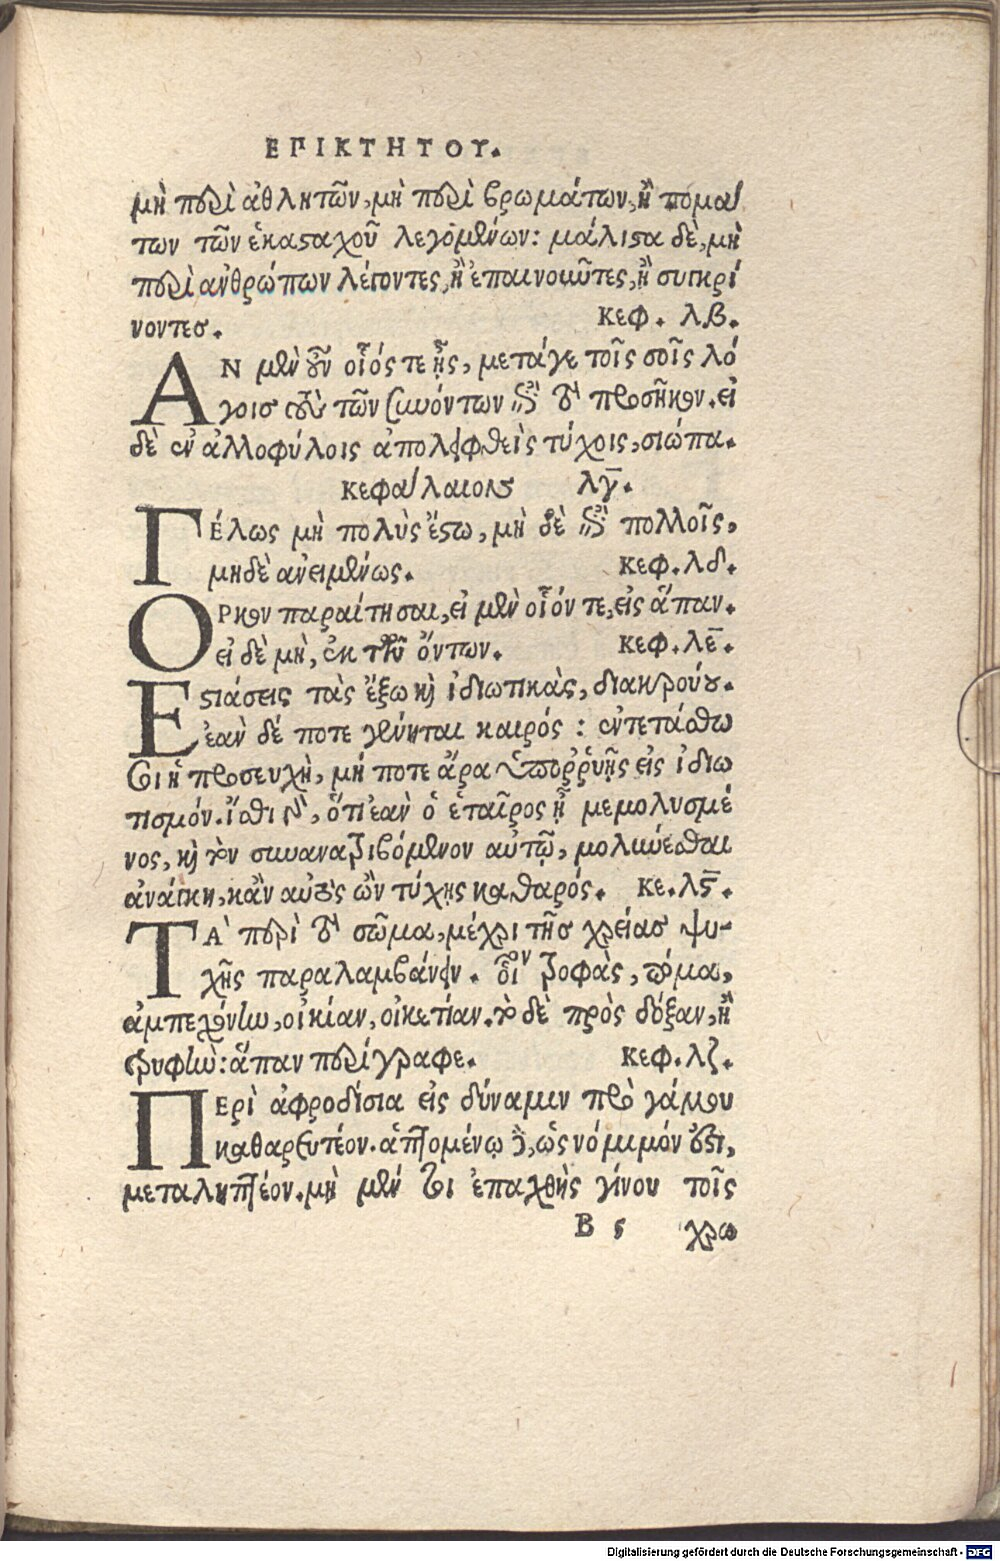 ΕΠΙΚΤΗΤΟΥ.
μὴ περὶ ἀθλητῶν, μὴ περὶ βρωμάτων, ἢ πομά
των τῶν ἑκασταχοῦ λεγομένων: μάλιστα δὲ, μὴ
περὶ ἀνθρώπων λέγοντες, ἢ ἐπαινοῦντες, ἢ συγκρί
νοντες. Κεφ. λβ.
ΑΝ μὲν οὖν οἷός τε ᾖς, μετάγε τοῖς σοῖς λό
γοις τοὺς τῶν συνόντων ἐπὶ τὸ προσῆκον. εἰ
δὲ ἐν ἀλλοφύλοις ἀποληφθεὶς τύχοις, σιώπα.
Κεφάλαιον λγ.
Γέλως μὴ πολὺς ἔστω, μὴ δὲ ἐπὶ πολλοῖς,
μηδὲ ἀνειμένως. Κεφ. λδ.
ΟΡκον παραίτησαι, εἰ μὲν οἷόν τε, εἰς ἅπαν.
εἰ δὲ μὴ, ἐκ τῶν ὄντων. Κεφ. λε.
Εστιάσεις τὰς ἔξω καὶ ἰδιωτικὰς, διακρούου.
ἐὰν δέ ποτε γένηται καιρός: ἐντετάσθω
σοι ἡ προσευχὴ, μή ποτε ἄρα ὑπορρυῇς εἰς ἰδιω
τισμόν. ἴσθι γὰρ, ὅτι ἐὰν ὁ ἑταῖρος ᾖ μεμολυσμέ
νος, καὶ τὸν συναναβιβόμενον αὐτῷ, μολύνεσθαι
ἀνάγκη, κἂν αὐτὸς ὢν τύχῃς καθαρός. Κε. λϛ.
ΤΑ περὶ τὸ σῶμα, μέχρι τῆς χρείας ψυ-
χῆς παραλαμβάνειν. οἷον τροφὰς, πόμα,
ἀμπεχόνην, οἰκίαν, οἰκετίαν. τὸ δὲ πρὸς δόξαν, ἢ
τρυφὴν: ἅπαν περίγραφε. Κεφ. λζ.
ΠΕρὶ ἀφροδίσια εἰς δύναμιν πρὸ γάμου
καθαρευτέον. ἁπτομένῳ δὲ, ὡς νόμιμόν ἐστι,
μεταληπτέον. μὴ μέν τοι ἐπαχθὴς γίνου τοῖς
Β 5 χρω
Digitalisierung gefördert durch die Deutsche Forschungsgemeinschaft - DFG